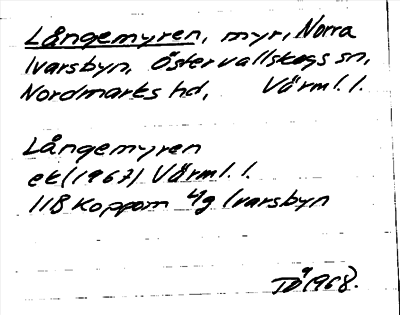 Långemyren, myr, Norra
Ivarsbyn, Östervallskogs sn,
Nordmarks hd, Värml. l.
Långemyren
ek (1967) Värml. l.
11B Koppom 4g Ivarsbyn
TD 1968.